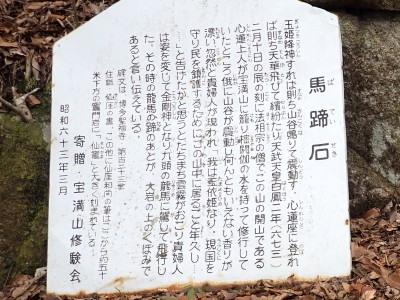 馬蹄石
ばていせき
玉姫降神すれば則ち山谷鳴りて震動す、心蓮座に登れ
ば則ち天華飛びて繽紛たり天武天皇白鳳二年(六七三)
二月十日の辰の刻に法相宗の僧でこの山の開山である
心蓮上人が宝満山に籠り閼伽の水を持って修行して
いたところ俄に山谷が震動し何んともいえない香りが
漂い忽然と貴婦人が現われ、我は玉依姫なり、現国を
守り民を鎮護するためにこの山中に居ること年久し
…」と告げたかと思うとたちまち雲霧がおこり貴婦人
は姿を変じて金剛神となり九頭の龍馬に駕して飛行し
た。その時の龍馬の蹄のあとが、大岩の上のくぼみで
あると言い伝えている。
碑文は、博多聖福寺 第百二十三世
住職 仙厓の書、この他に仙厓和尚の筆はここから約五十
米下方の竈門岩に「仙竈」と大きく刻まれている
昭和六十三年三月
寄贈・宝満山修験会